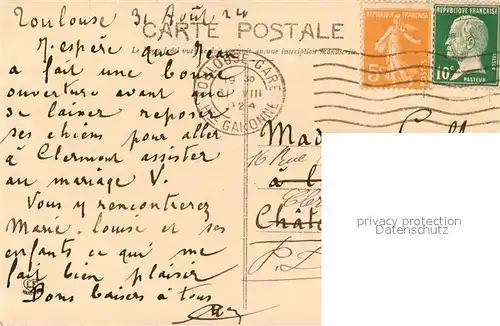 Toulouse 31 Août 24
CARTE POSTALE
J'espère que Jean
a fait une bonne
ouverture avant que
de laisser reposer
ses chiens pour aller
à Clermont assister
au mariage V.
Vous y rencontrerez
Marie-Louise et ses
enfants ce qui me
fait bien plaisir
Bons baisers à tous
TOULOUSE-GARE
VIII
24
Hte GARONNE
REPUBLIQUE FRANÇAISE
5c
REPUBLIQUE FRANÇAISE
10c
PASTEUR
16 Rue
à
Chât
P.D
privacy protection
Datenschutz